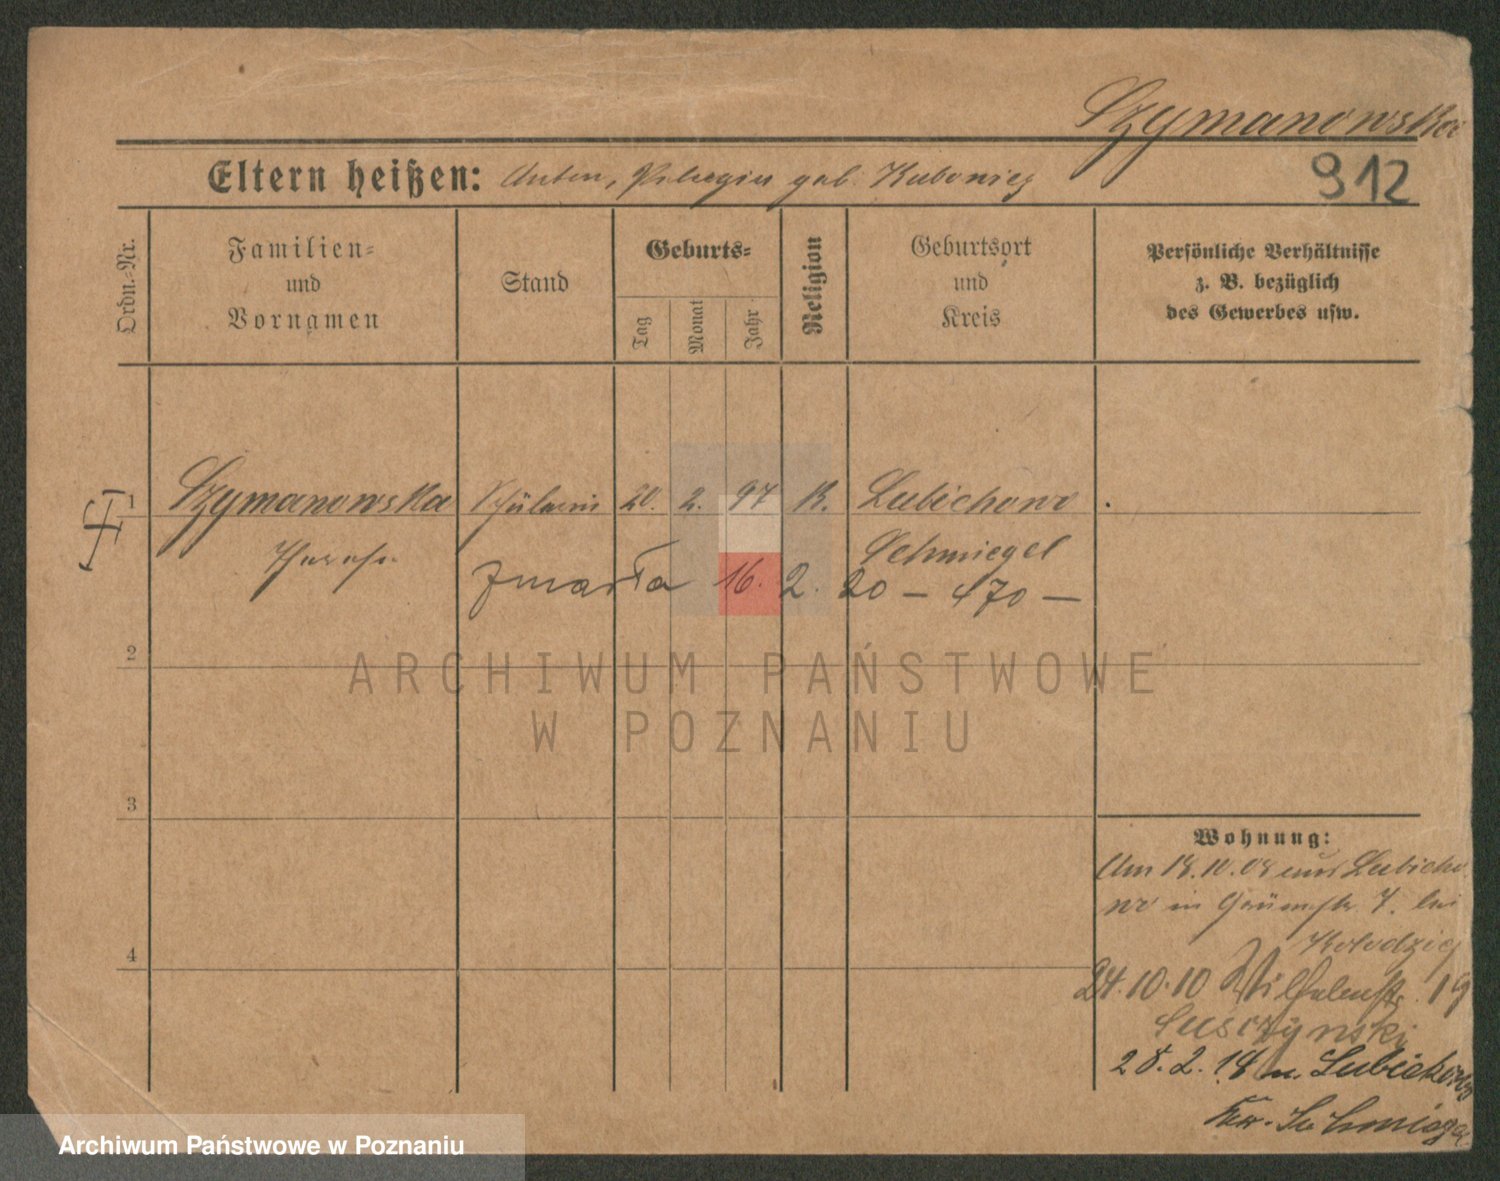 Szymanowska
912
Eltern heißen: Anton, Pelagia geb. Kubowicz
Ordn.-Nr.
Familien-
und
Vornamen
Stand
Geburts-
Tag
Monat
Jahr
Religion
Geburtsort
und
Kreis
Persönliche Verhältnisse
z. B. bezüglich
des Gewerbes usw.
1 Szymanowska Schülerin 20. 2. 97 K. Lubichowo
Schmiegel
zmarła 16. 2. 20 – 470 –
2
ARCHIWUM PAŃSTWOWE
W POZNANIU
3
Wohnung:
Am 18.10.08 aus Lubicho
wo in 7. bei
Kolodziej
4
24.10.10 Wilhelmstr. 19
Suszczynski
28.2.18 n. Lubichowo
Krs. Schmiegel
Archiwum Państwowe w Poznaniu